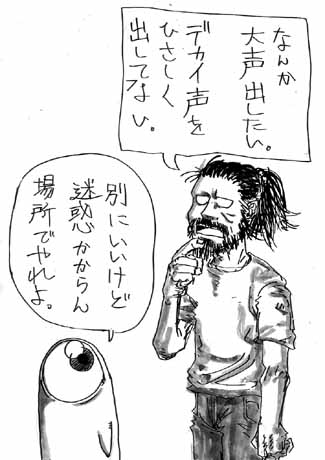 なんか
大声出したい。
デカイ声を
ひさしく
出してない。
別にいいけど
迷惑かからん
場所でやれよ。